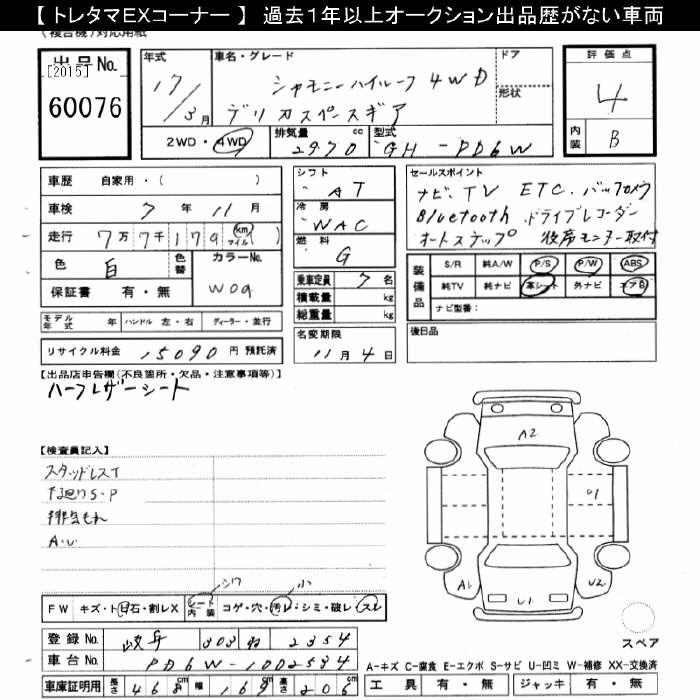 【 トレタマEXコーナー 】 過去１年以上オークション出品歴がない車両
(複合機)対応用紙
出品No.
[2015]
60076
年式
17/3月
車名・グレード
シャモニーハイルーフ 4WD
デリカスペースギア
ドア
形状
評価点
4
内装 B
2WD・4WD
排気量 2970 cc
型式 GH-PD6W
車歴 自家用・( )
車検 7年11月
走行 7万7千179 (km マイル)
色 白
色替
カラーNo. W09
保証書 有・無
シフト AT
冷房 WAC
燃料 G
乗車定員 7名
積載量 kg
総重量 kg
セールスポイント
ナビ、TV ETC.バックカメラ
Bluetooth ドライブレコーダー
オートステップ 後席モニター取付
装備品
S/R 純A/W P/S P/W ABS
純TV 純ナビ 革シート 外ナビ エアB
ナビ型番：
モデル年式 年 ハンドル 左・右 ディーラー・並行
名変期限
11月4日
後日品
リサイクル料金 15090 円 預託済
【出品店申告欄(不良箇所・欠品・注意事項等)】
ハーフレザーシート
【検査員記入】
スタッドレスT
下廻りS・P
排気もれ
A・U
A2
U1
A1
U2
U1
シワ
小
FW キズ・ト・日石・割レX シート内装 コゲ・穴・汚レ・シミ・破レ・スレ
登録No. 岐阜 303 ね 2354
車台No. PD6W-1002534
車庫証明用 長さ 468cm 幅 169cm 高さ 206cm
スペア
A-キズ C-腐食 E-エクボ S-サビ U-凹ミ W-補修 XX-交換済
工具 有・無 ジャッキ 有・無